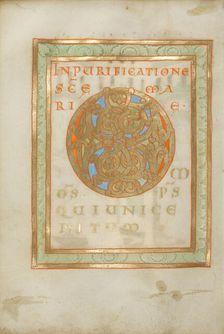 IN PURIFICATIONE
SCE MA
RI E·
M
OS PS
QUI UNICE
NITUM